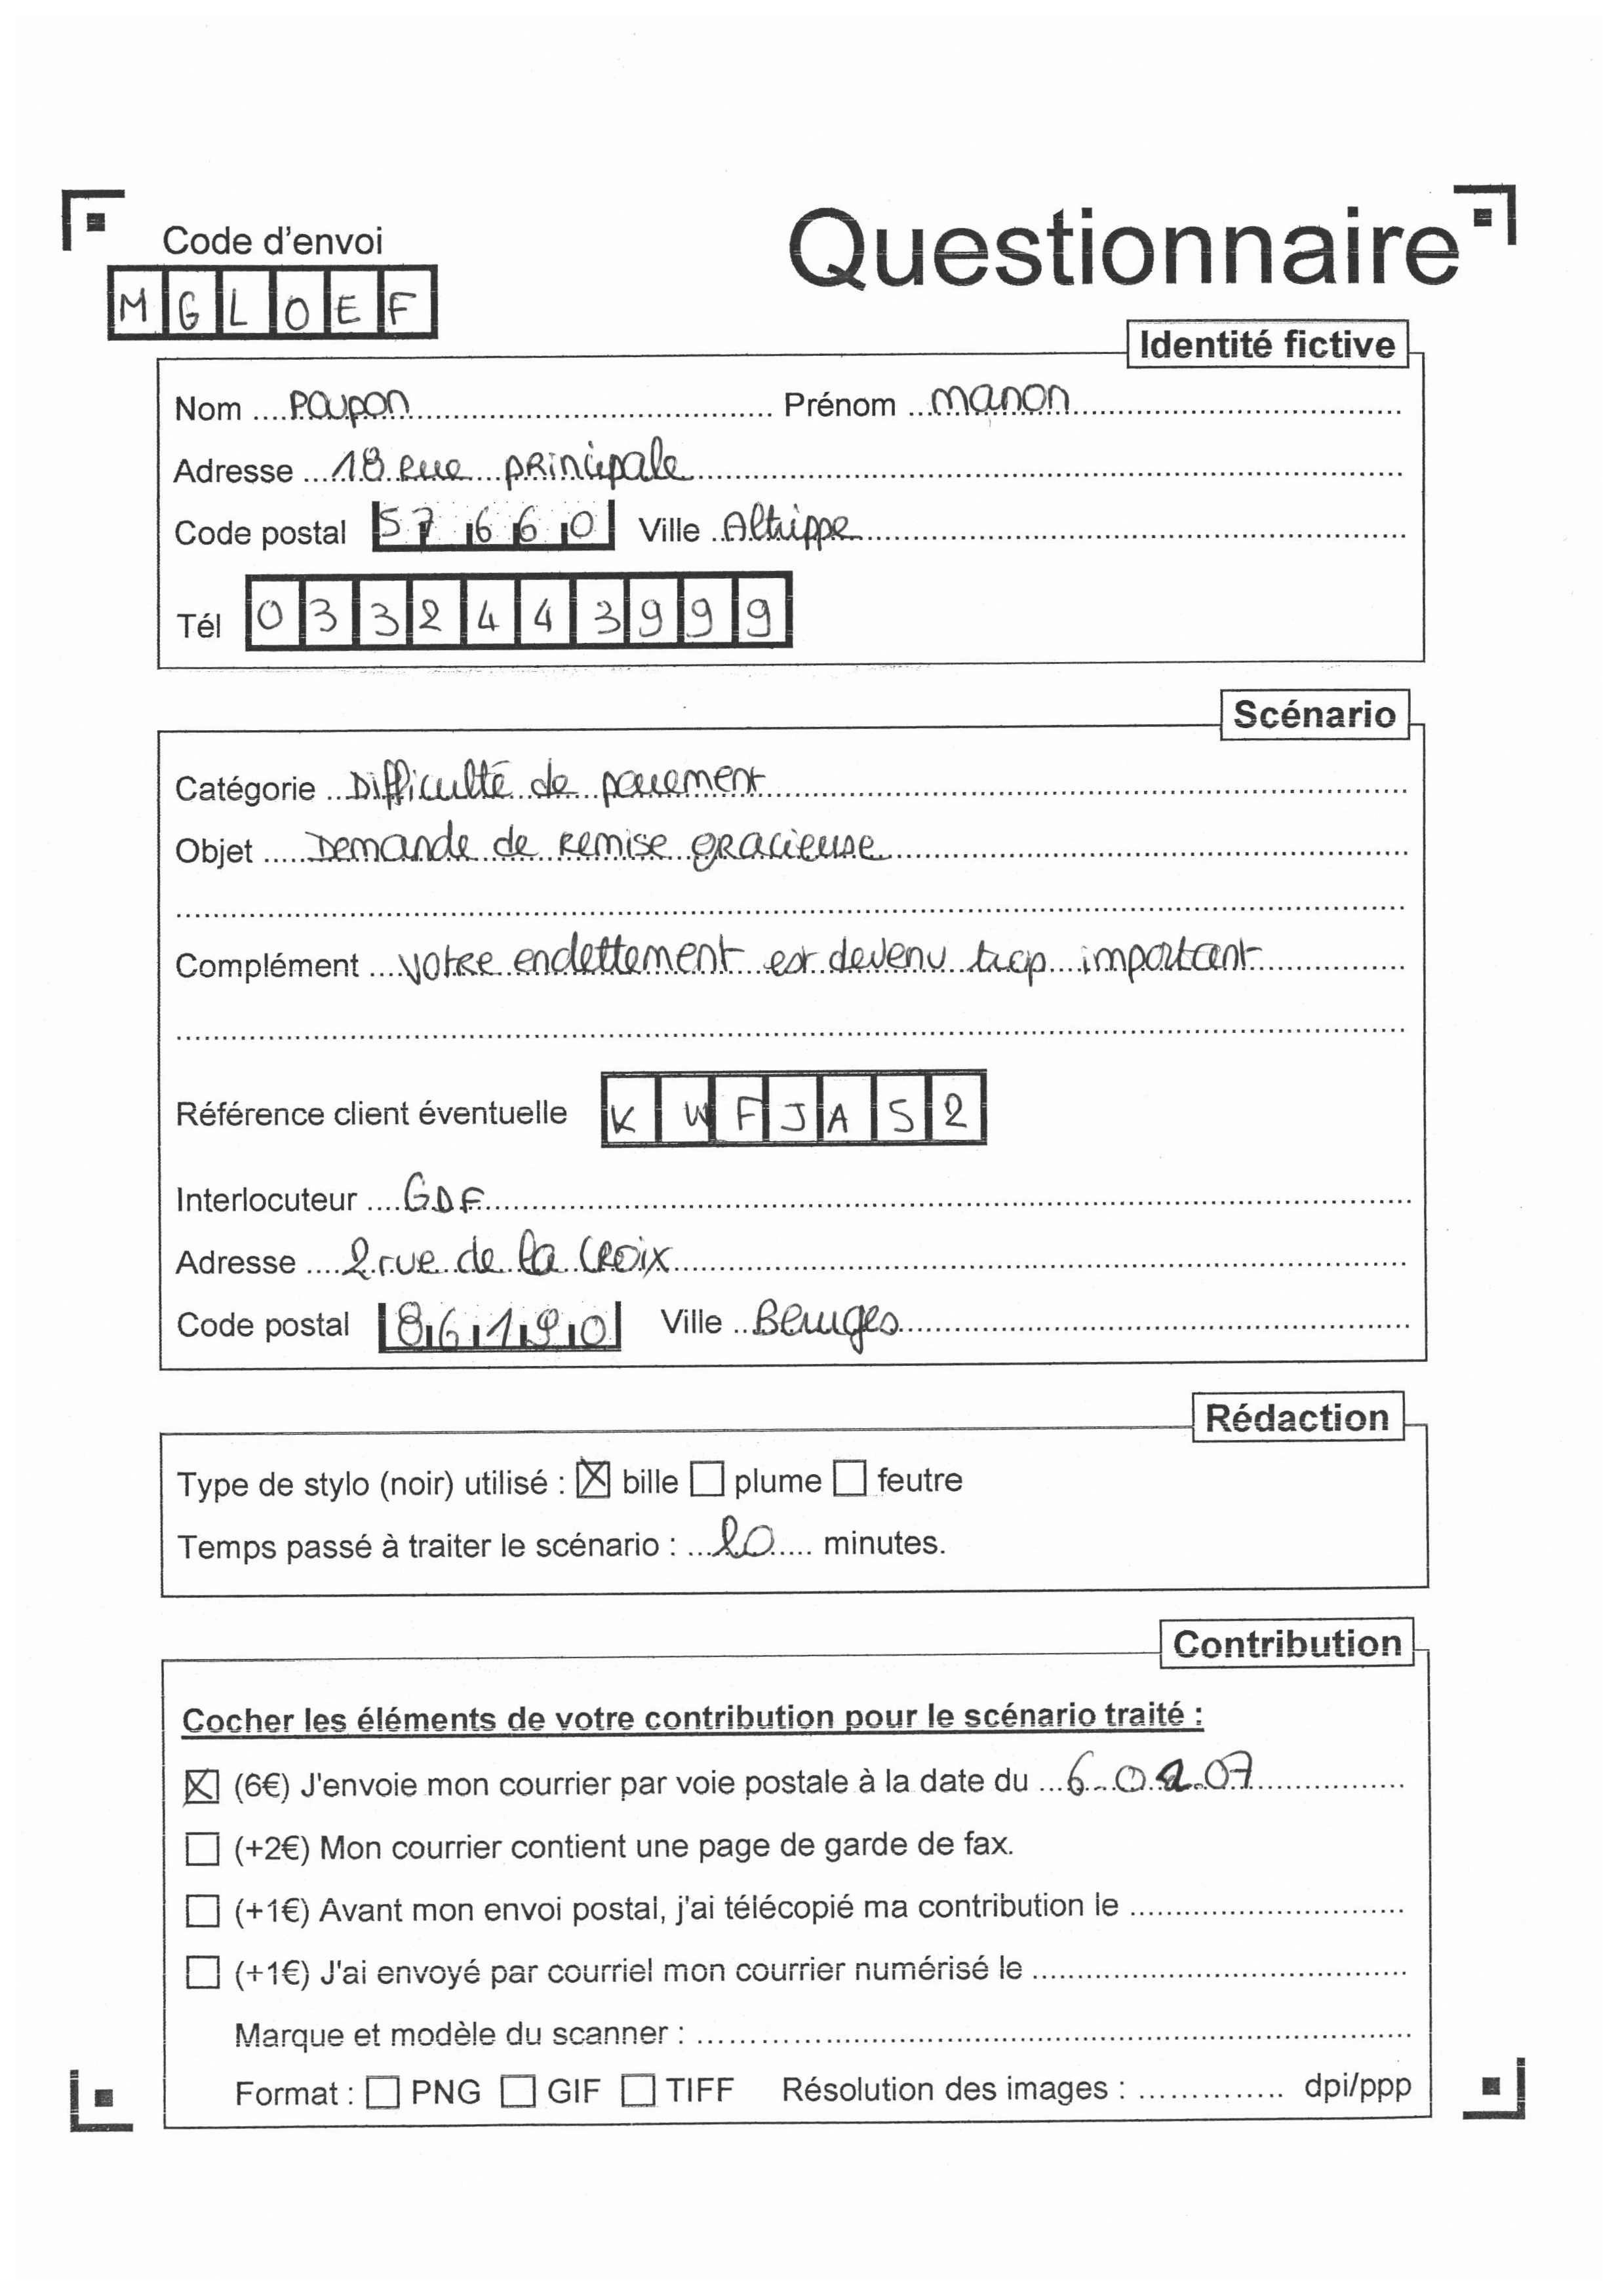 Code d'envoi
Questionnaire
MGLOEF
Identité fictive
Nom Poupon Prénom manon
Adresse 18 rue principale
Code postal 57660 Ville Altrippe
Tél 0332443999
Scénario
Catégorie Difficulté de paiement
Objet Demande de remise gracieuse
Complément votre endettement est devenu trop important
Référence client éventuelle KWFJAS2
Interlocuteur GDF
Adresse 2 rue de la croix
Code postal 86190 Ville Beruges
Rédaction
Type de stylo (noir) utilisé : ☒ bille ☐ plume ☐ feutre
Temps passé à traiter le scénario : 20 minutes.
Contribution
Cocher les éléments de votre contribution pour le scénario traité :
☒ (6€) J'envoie mon courrier par voie postale à la date du 6.02.07
☐ (+2€) Mon courrier contient une page de garde de fax.
☐ (+1€) Avant mon envoi postal, j'ai télécopié ma contribution le
☐ (+1€) J'ai envoyé par courriel mon courrier numérisé le
Marque et modèle du scanner :
Format : ☐ PNG ☐ GIF ☐ TIFF Résolution des images : dpi/ppp